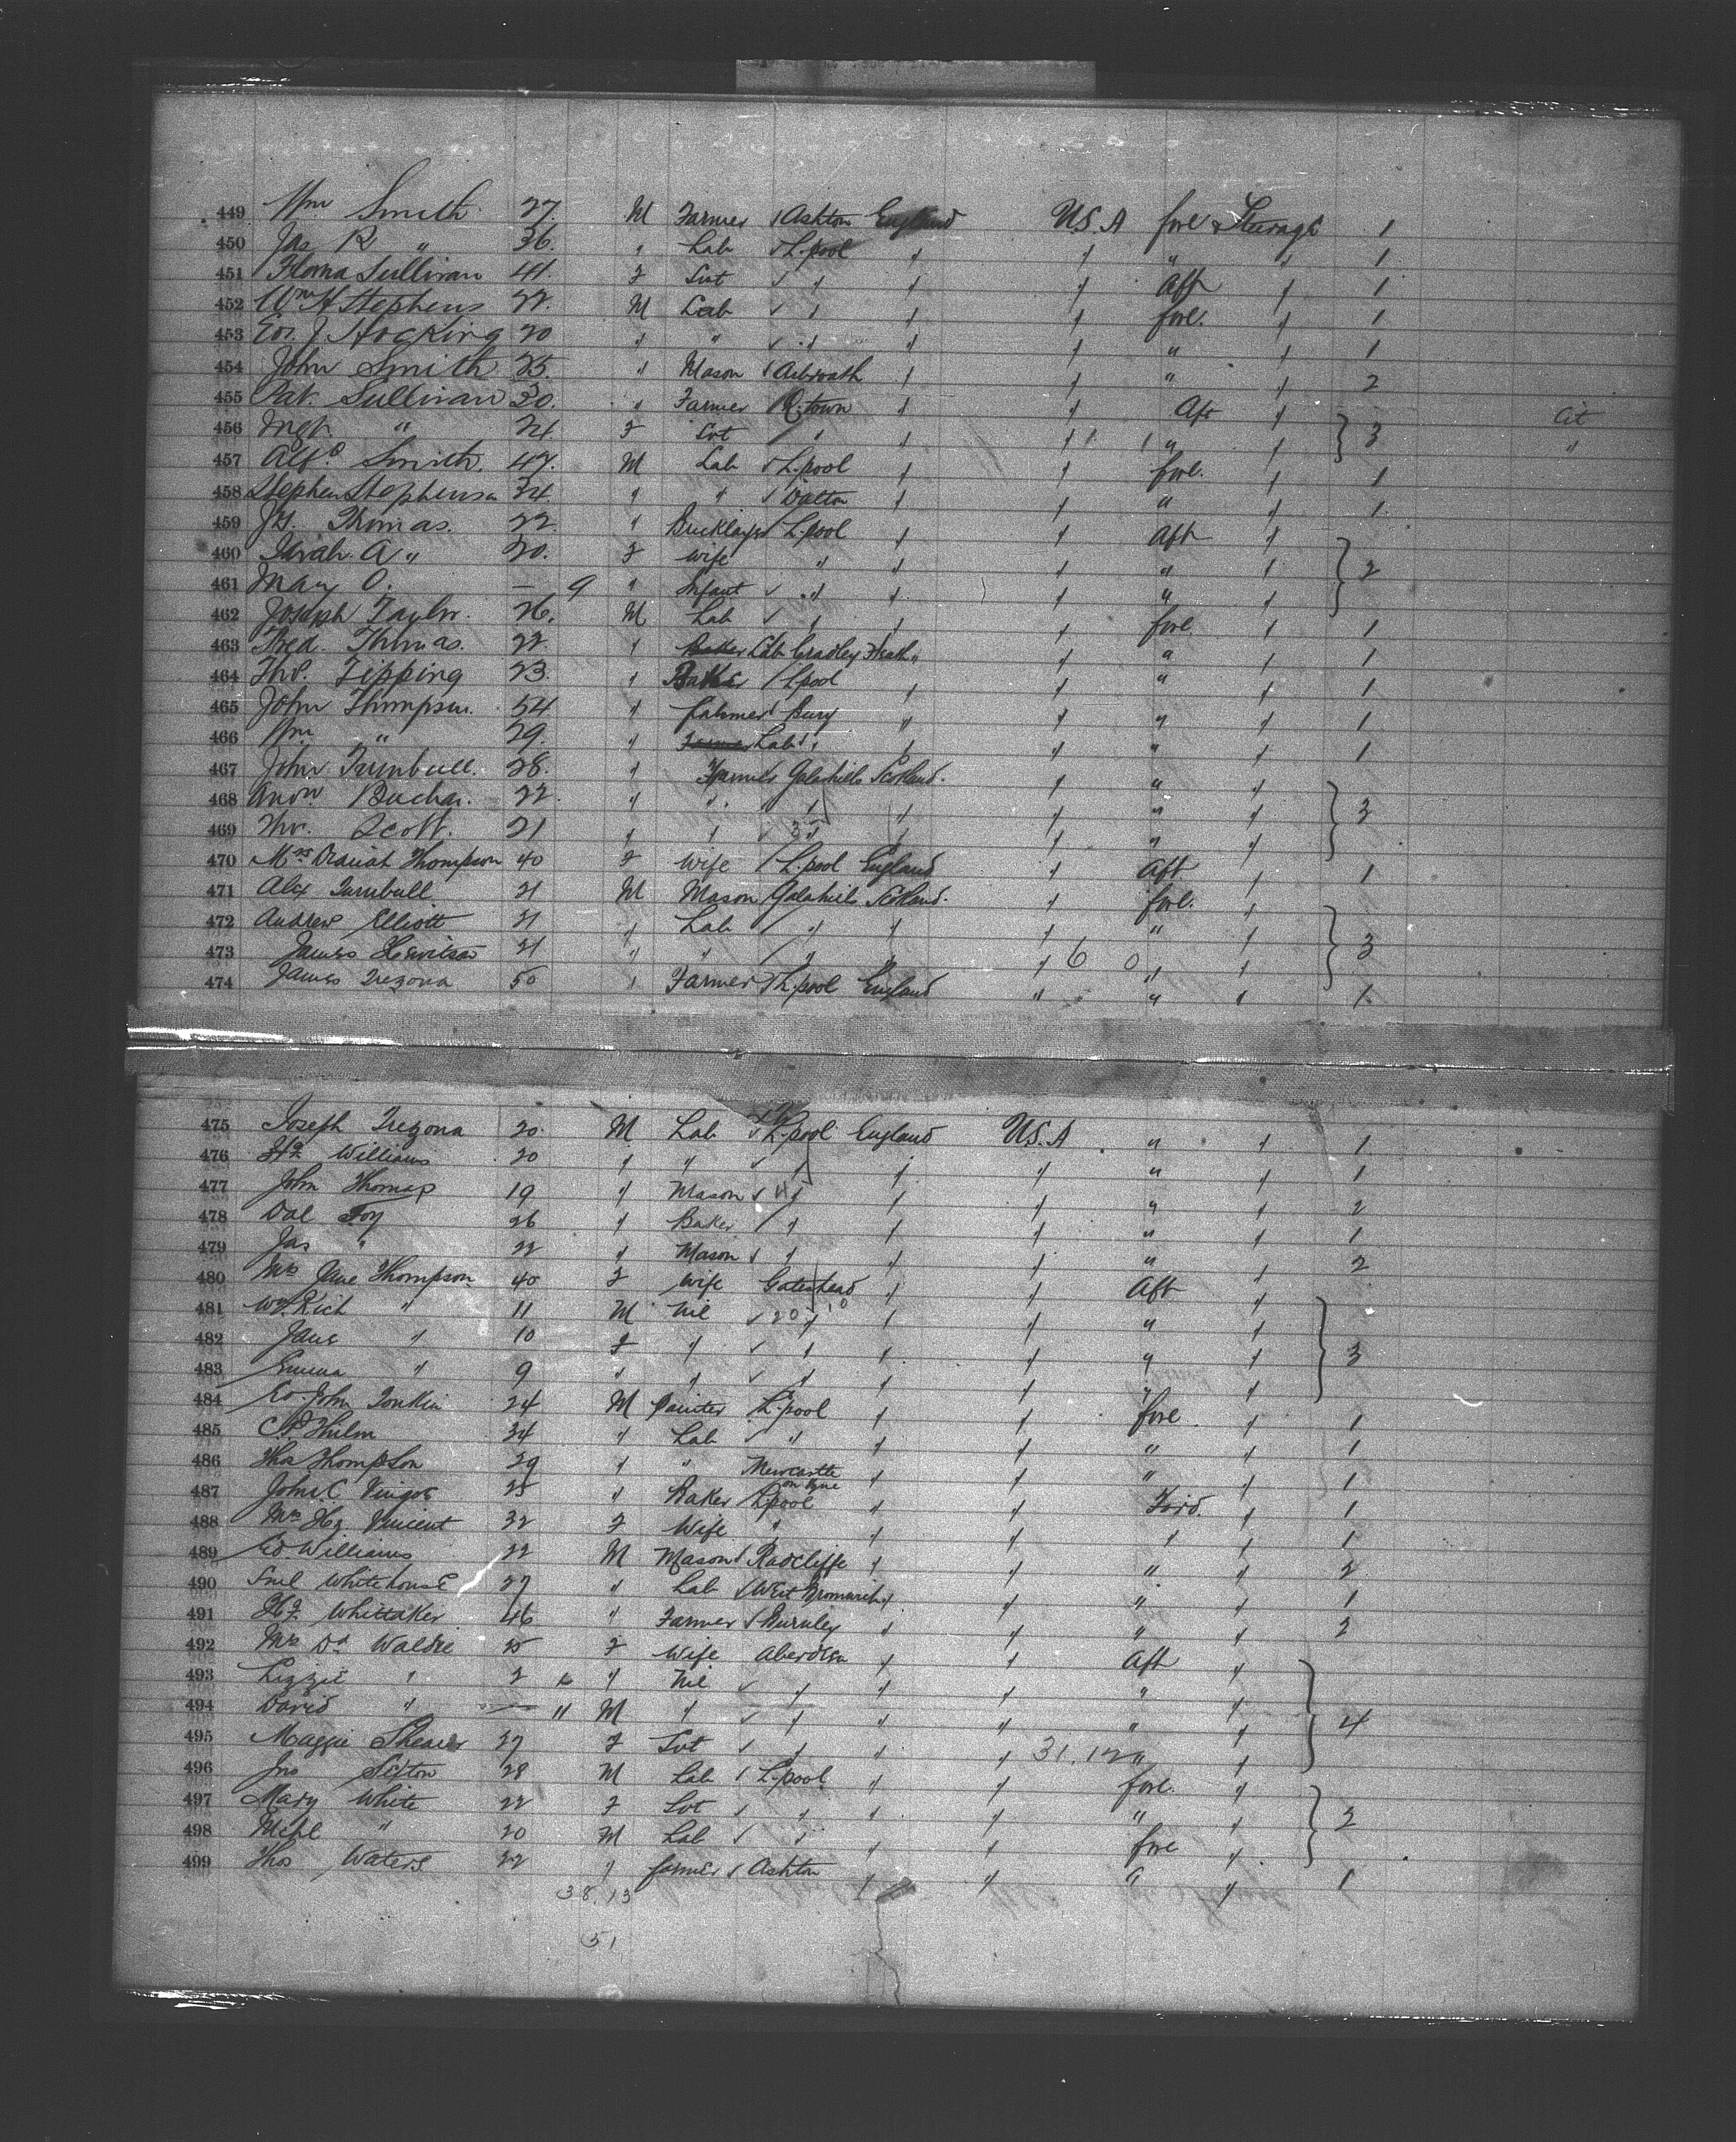 449 Wm Smith 27. M Farmer Ashton England U.S.A fore Steerage 1
450 Jas R " 36. " Lab L.pool " " " " 1
451 Sullivan 41. F Svt " " " Aft " 1
452 Wm H Stephens 22. M Lab " " " fore. " 1
453 J Hocking 20 " " " " " " " 1
454 John Smith 25. " Mason " " " " 2
455 Pat. Sullivan 30. " Farmer Q.town " " Aft " Cit
456 Mgt. " 24. F Svt " " " " " 3 "
457 Alfd Smith. 47. M Lab L.pool " " fore. " 1
458 Stephen Stephenson 34. " " Dalton " " " " 1.
459 Thomas. 22. " Bricklayer L.pool " " Aft "
460 Sarah. A " 20. F wife " " " " " 2
461 Mary O. — 9 " Infant " " " " "
462 Joseph Taylor. 26. M Lab " " " fore. " 1
463 Fred. Thomas. 22. " Baker Lab Cradley Heath " " " " 1
464 Tho. Tipping 23. " Baker L.pool " " " " 1
465 John Thompson. 54. " Bury " " " " 1
466 Wm " 29. " Farmer Lab " " " " " 1
467 John Turnbull. 28. " Farmer Galashiels Scotland. " " "
468 Andw Buchan. 22. " " " " " " " 3
469 Scott. 21 " " " " " " "
470 Mrs Thompson 40 F Wife L.pool England " Aft " 1
471 Alex Turnbull 21 M Mason Galashiels Scotland. " fore. "
472 Andrew Elliott 21 " Lab " " " " " 3
473 James Hewitson 21 " " " " " 6 0 " "
474 James Tregona 50 " Farmer L.pool England " " " 1.
475 Joseph Tregona 20. M Lab L.pool England U.S.A " " 1.
476 Hy Williams 20 " " " " " " " 1
477 John Thomas 19 " Mason " " " " " 2
478 Foy 26 " Baker " " " " " 1
479 Jas " 22 " Mason " " " " " 2
480 Mrs Jane Thompson 40 F Wife Gateshead " " Aft "
481 Wm Rich " 11 M Nil 20 10 " " " " "
482 Jane " 10 F " " " " " " 3
483 Emma " 9 " " " " " " "
484 Ed. John Tonkin 24 M Painter L.pool " " fore " 1
485 34 " Lab " " " " " 1
486 Thos Thompson 29 " " Newcastle on Tyne " " " " 1
487 John C 25 " Baker L.pool " " Ford. " 1
488 Mrs Hy. Vincent 32 F Wife " " " " " 1
489 Ed. Williams 22 M Mason Radcliffe " " " " 2
490 Saml Whitehouse 27 " Lab West Bromwich " " " " 1
491 Hy Whittaker 46 " Farmer Burnley " " " " 2
492 Mrs Dd Waldie 25 F Wife Aberdeen " " Aft "
493 Lizzie " 2 " Nil " " " " "
494 David " — " M " " " " " " 4
495 Maggie Shearer 27 F Svt " " " 31.12 " "
496 Jno Sexton 28 M Lab L.pool " " fore. "
497 Mary White 22 F Svt " " " " " 2
498 Michl " 20 M Lab " " " fore "
499 Thos Waters 22 " farmer Ashton " " " " 1
38.13
51